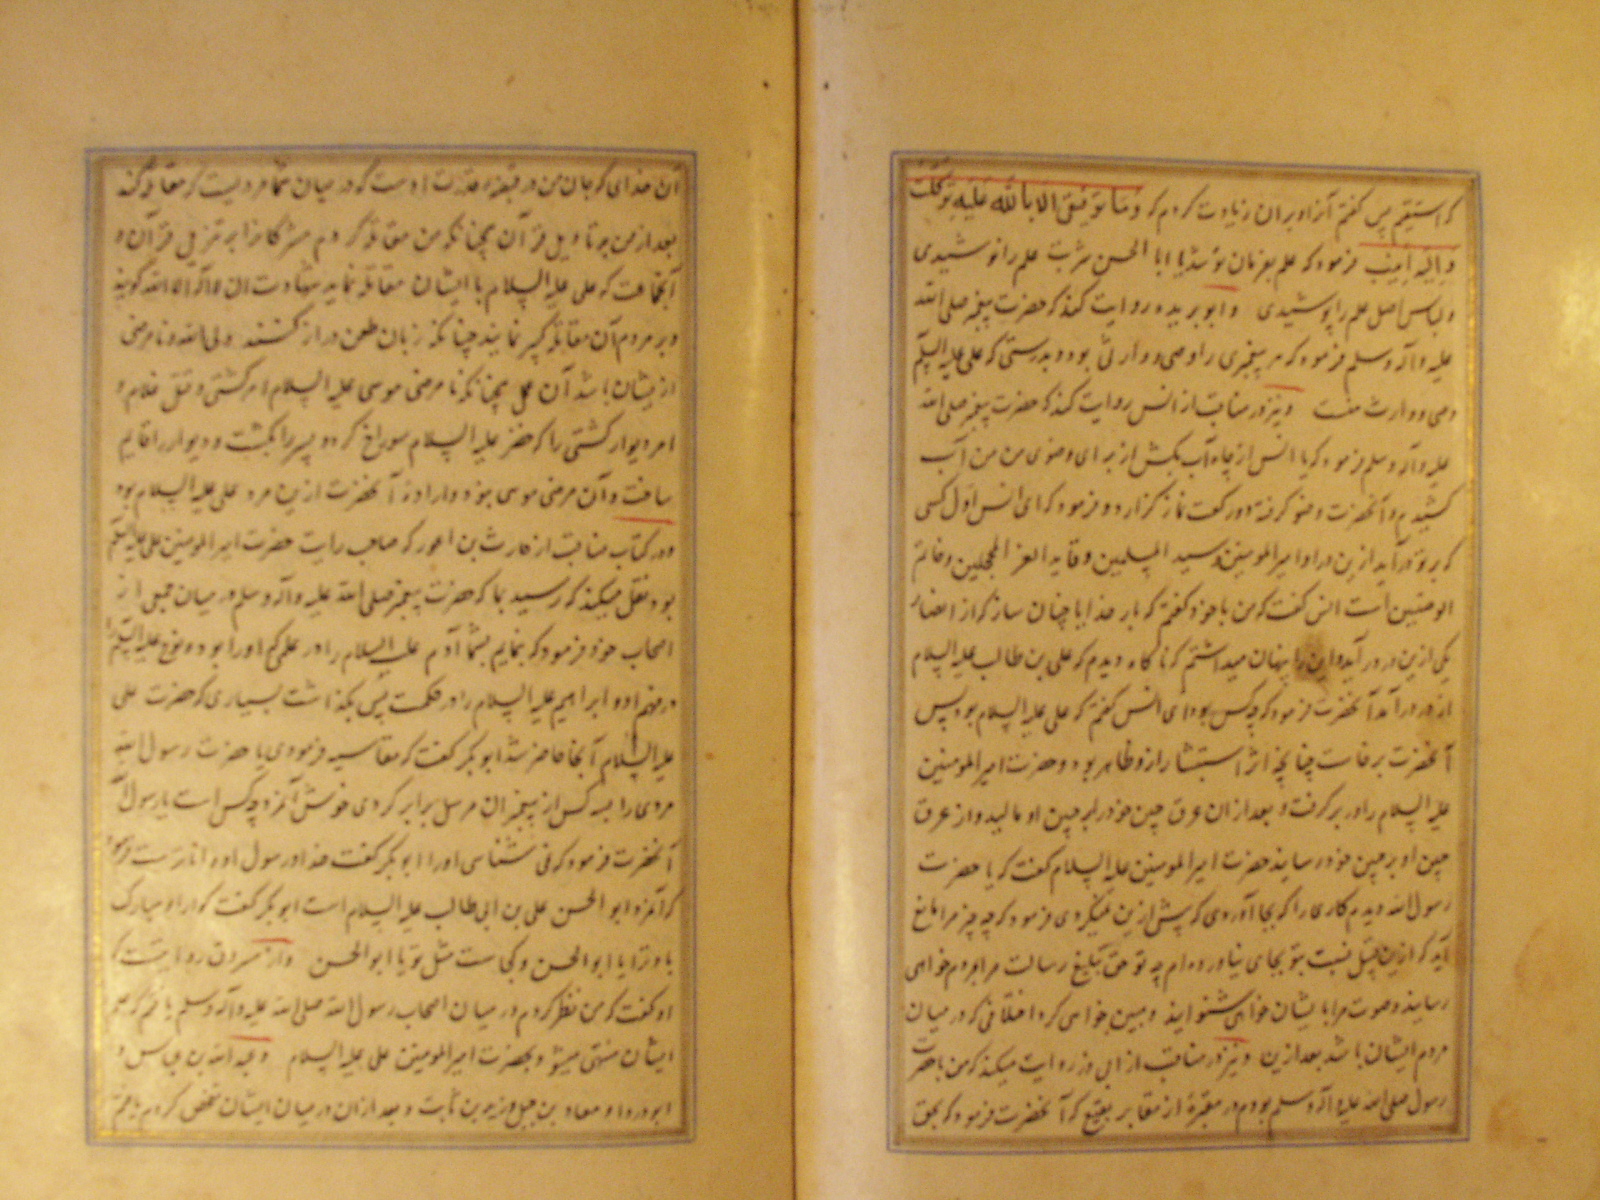 که استقیم پس گفتم آنرا و بران زیادت کردم که و ما توفیقی الا بالله علیه توکلت
و الیه انیب فرمود که علم بعزبان تو شد یا ابا الحسن شربت علم را نوشیدی
و لباس اصل علم را پوشیدی و ابو بریده روایت کند که حضرت پیغمبر صلی الله
علیه و آله و سلم فرمود که هر پیغمبری را وصی و وارثی بود و بدرستی که علی علیه السلام
وصی و وارث منست و نیز در مناقب از انس روایت کند که حضرت پیغمبر صلی الله
علیه و آله و سلم فرمود که یا انس از چاه آب بکش از برای وضوی من من آب
کشیدم و آنحضرت وضو گرفته دو رکعت نماز گزارد و فرمود که ای انس اول کسی
که بر تو در آید ازین در او امیر المومنین و سید المسلمین و قاید الغر المحجلین و خاتم
الوصیین است انس گفت که من با خود گفتم که بار خدایا چنان ساز که از انصار
یکی ازین در در آید و این را پنهان میداشتم که ناگاه دیدم که علی بن طالب علیه السلام
از در در آمد آنحضرت فرمود که چه کس بود ای انس گفتم که علی علیه السلام بود پس
آنحضرت برخاست چنانچه اثر استبشار ازو ظاهر بود و حضرت امیر المومنین
علیه السلام را در بر گرفت و بعد از ان عرق جبین خود بر جبین او مالید و از عرق
جبین او بر جبین خود رسانید حضرت امیر المومنین علیه السلام گفت که یا حضرت
رسول الله دیدم کاری را که بجا آوردی که پیش ازین نمیکردی فرمود که چه چیز مرا مانع
آید که ازین قبیل نسبت بتو بجای نیاورده ام چه تو حق تبلیغ رسالت مرا بمردم خواهی
رسانید و صوت مرا بایشان خواهی شنوانید و مبین خواهی کرد اختلافی که در میان
مردم ایشان باشد بعد ازین و نیز در مناقب از ابی ذر روایت میکند که من با حضرت
رسول صلی الله علیه و آله و سلم بودم در مقبره از مقابر بقیع که آنحضرت فرمود که بحق
آن خدای که جان من در قبضه قدرت اوست که در میان شما مردیست که مقاتله کند
بعد از من بر تاویل قرآن چنانکه من مقاتله کردم مشرکانرا بر تنزیل قرآن و
آنجماعت که علی علیه السلام با ایشان مقاتله نماید شهادت ان لا اله الا الله گویند
و بر مردم آن مقاتله کبیر نمایند چنانکه زبان طعن دراز کنند ولی الله و نامرضی
ازیشان باشد آن عمل چنانکه نامرضی موسی علیه السلام امر کشتی و قتل غلام و
امر دیوار کشتی را که خضر علیه السلام سوراخ کرد و پسر را بکشت و دیوار را قایم
ساخت و آن مرضی موسی نبود و مراد آنحضرت ازین مرد علی علیه السلام بود
و در کتاب مناقب از حارث بن اعور که صاحب رایت حضرت امیر المومنین علی علیه السلام
بود نقل میکند که رسید بما که حضرت پیغمبر صلی الله علیه و آله و سلم در میان جمعی از
اصحاب خود فرمود که بنمایم بشما آدم علیه السلام را در علم که او را بود و نوح علیه السلام را
در فهم او و ابراهیم علیه السلام را در حکمت پس نگذاشت بسیاری که حضرت علی
علیه السلام آنجا حاضر شد ابو بکر گفت که مقایسه فرمودی یا حضرت رسول الله
مردی را بسه کس از پیغمبران مرسل برابر کردی خوش آنمرد چه کس است یا رسول الله
آنحضرت فرمود که نمی شناسی او را ابو بکر گفت خدا و رسول او داناترست فرمود
که آنمرد ابو الحسن علی بن ابی طالب علیه السلام است ابو بکر گفت که مبارک
باد ترا یا ابو الحسن و کجاست مثل تو یا ابو الحسن و از مسروق روایتست که
او گفت که من نظر کردم در میان اصحاب رسول الله صلی الله علیه و آله و سلم یافتم که علم
ایشان منتهی میشود بحضرت امیر المومنین علی علیه السلام و عبد الله بن عباس و
ابو دردا و معاذ بن جبل و زید بن ثابت و بعد از ان در میان ایشان تفحص کردم یافتم